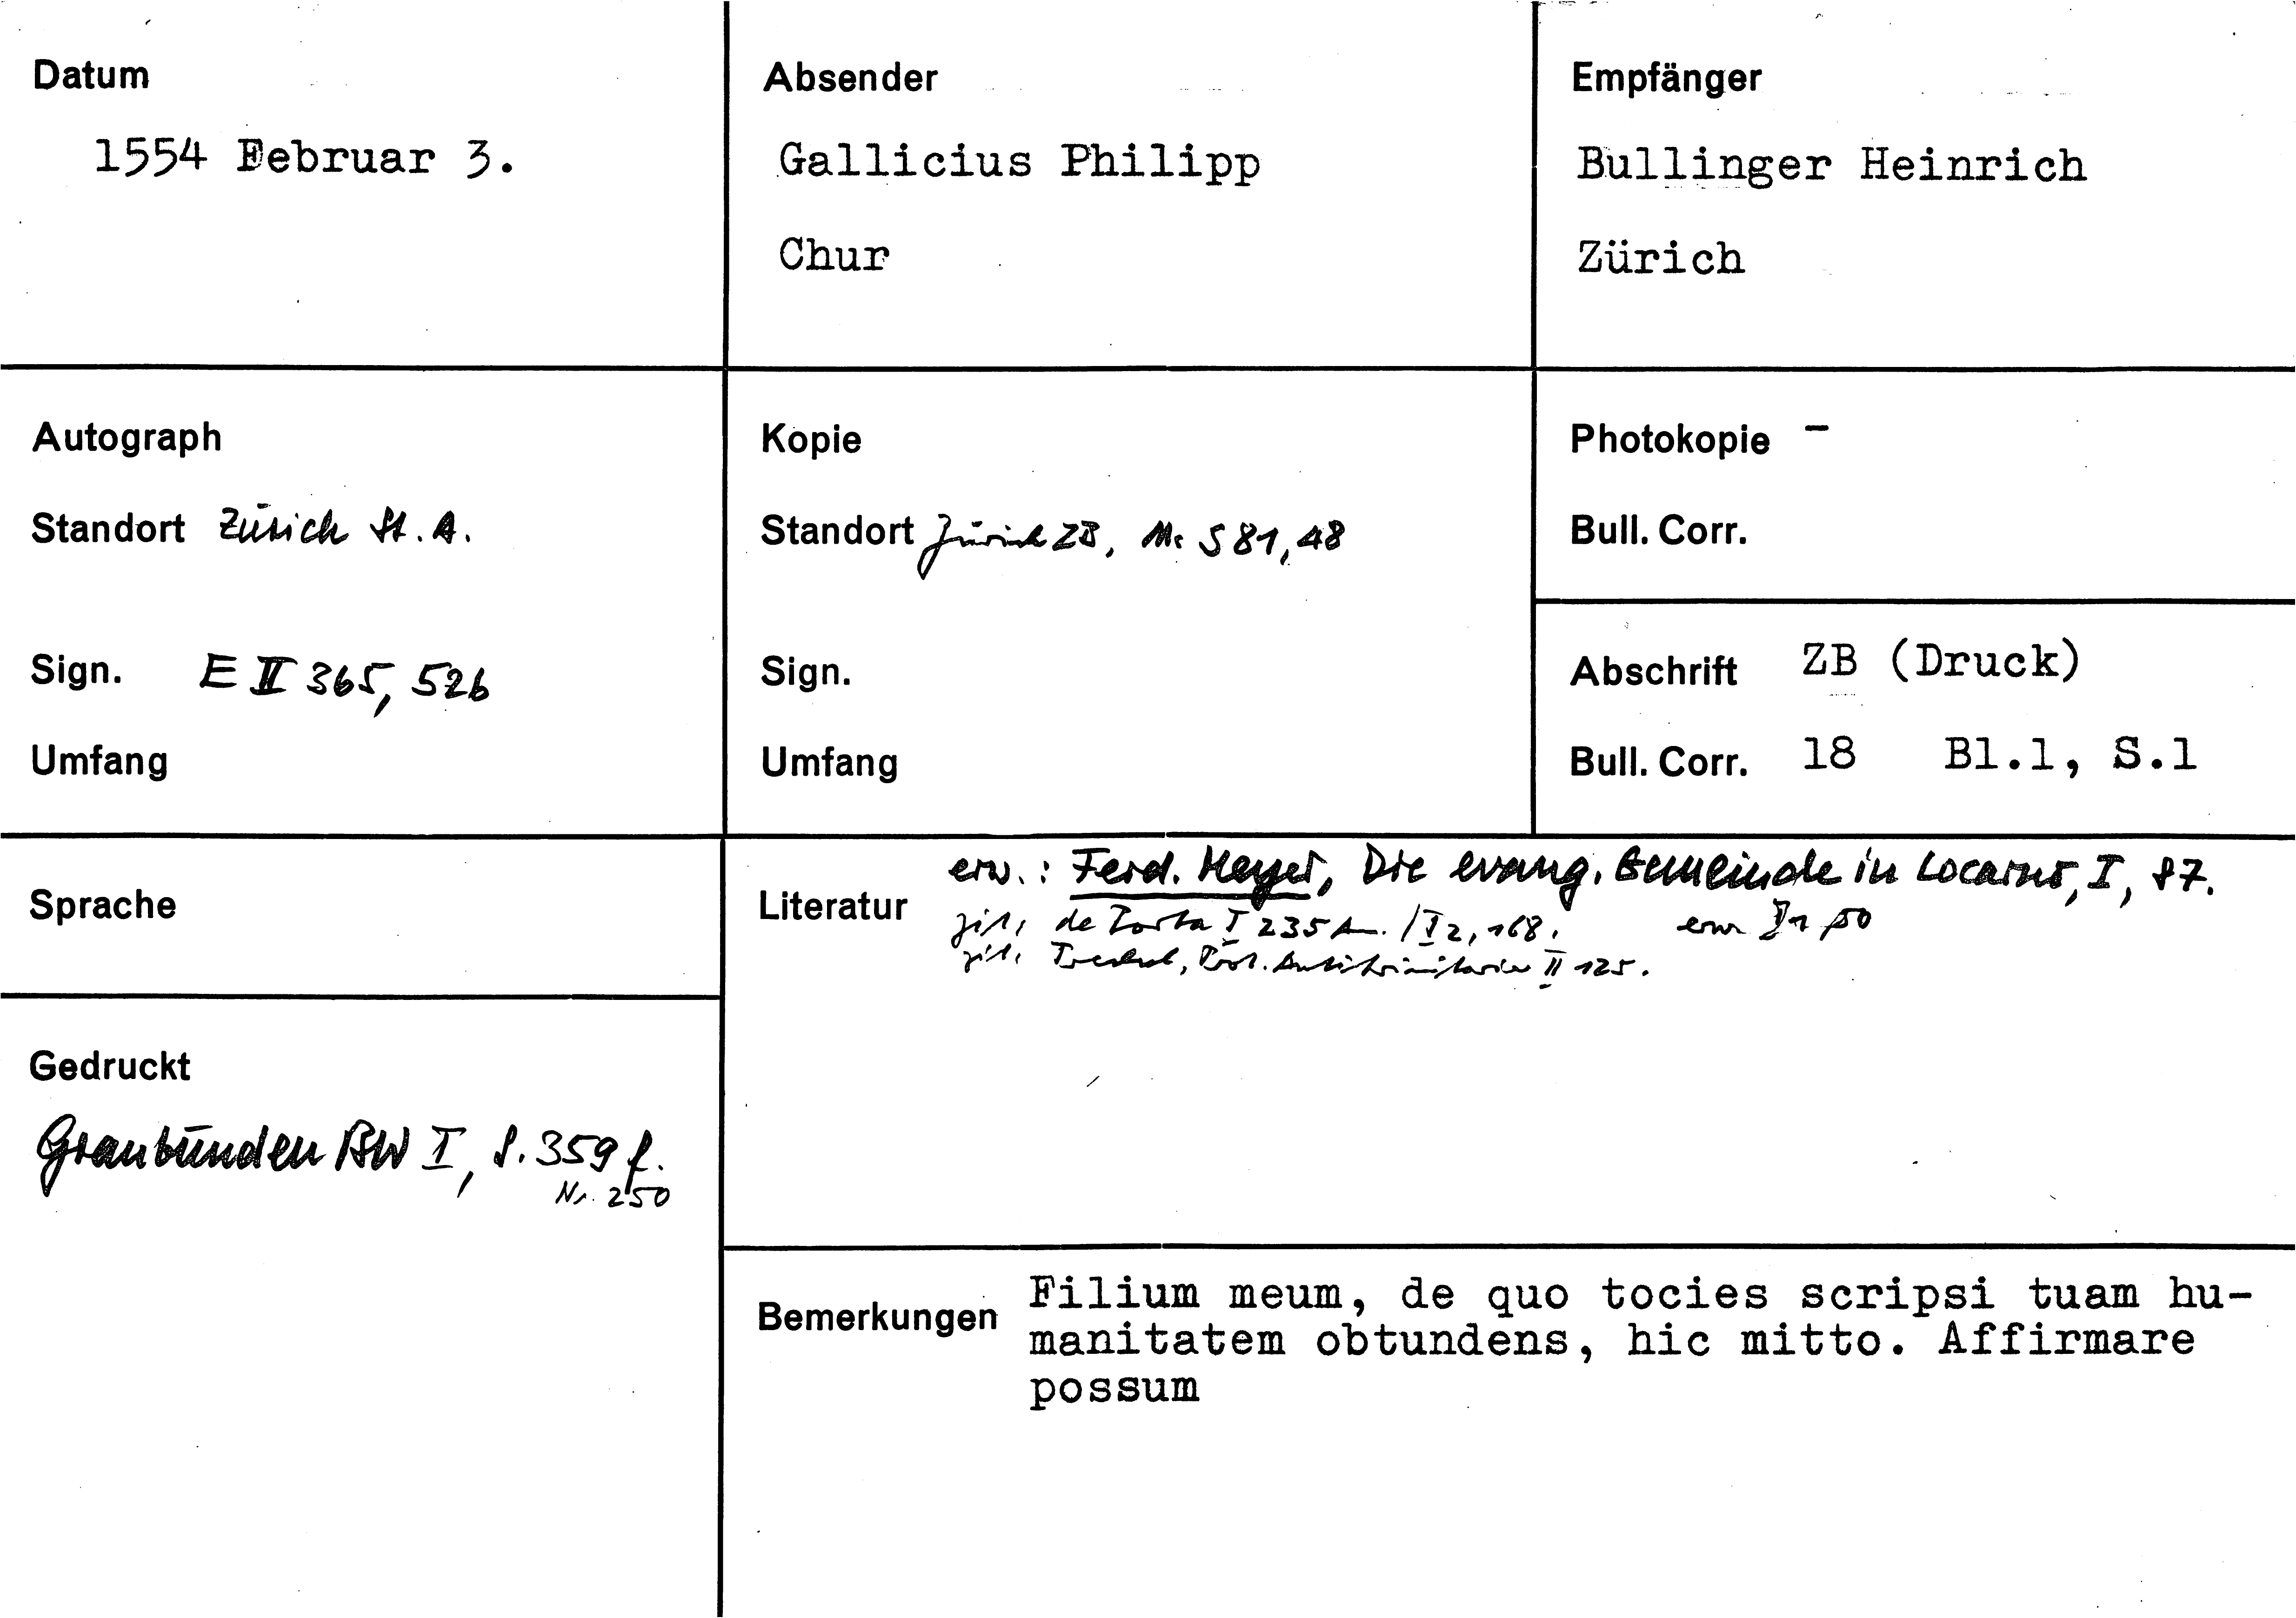 Datum
1554 Februar 3.
Absender
Gallicius Philipp
Chur
Empfänger
Bullinger Heinrich
Zürich
Autograph
Standort Zürich St. A.
Sign. E II 365, 526
Umfang
Kopie
Standort Zürich ZB, Ms S 81, 48
Sign.
Umfang
Photokopie -
Bull. Corr.
Abschrift ZB (Druck)
Bull. Corr. 18 Bl.1, S.1
Sprache
Literatur
erw.: Ferd. Meyer, Die evang. Gemeinde in Locarno, I, 87.
zit. de Porta I 235 A. / I 2, 168. erw
zit. Trechsel, Prot. Antitrinitarier II 125.
Gedruckt
Graubünden BW I, S. 359 f.
Nr. 250
Bemerkungen
Filium meum, de quo tocies scripsi tuam hu-
manitatem obtundens, hic mitto. Affirmare
possum